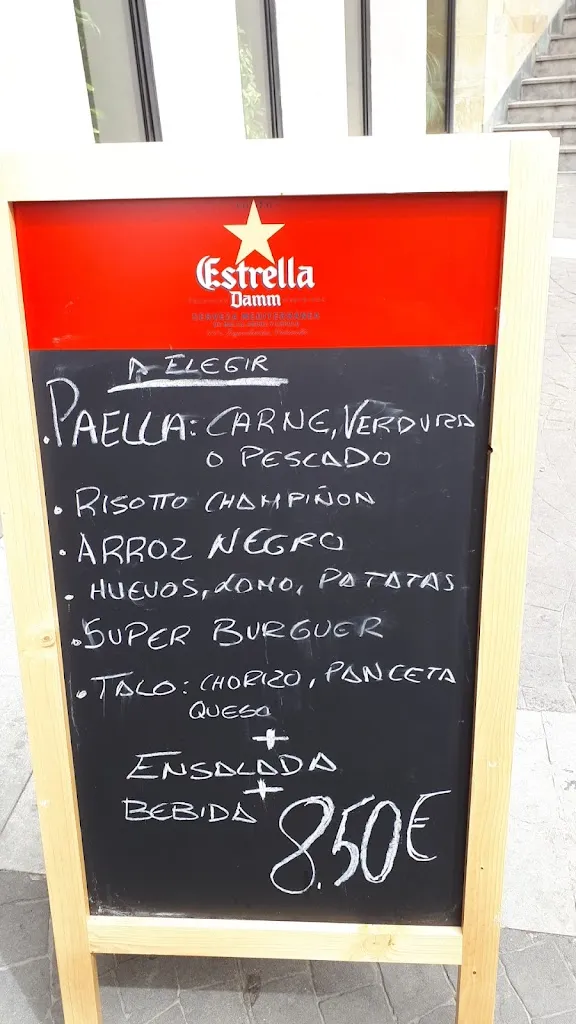 Estrella
Damm
A ELEGIR
.PAELLA: CARNE, VERDURA
O PESCADO
. RISOTTO CHAMPIÑON
. ARROZ NEGRO
. HUEVOS, LOMO, PATATAS
. SUPER BURGUER
. TACO: CHORIZO, PANCETA
QUESO
+
ENSALADA
+
BEBIDA 8,50€